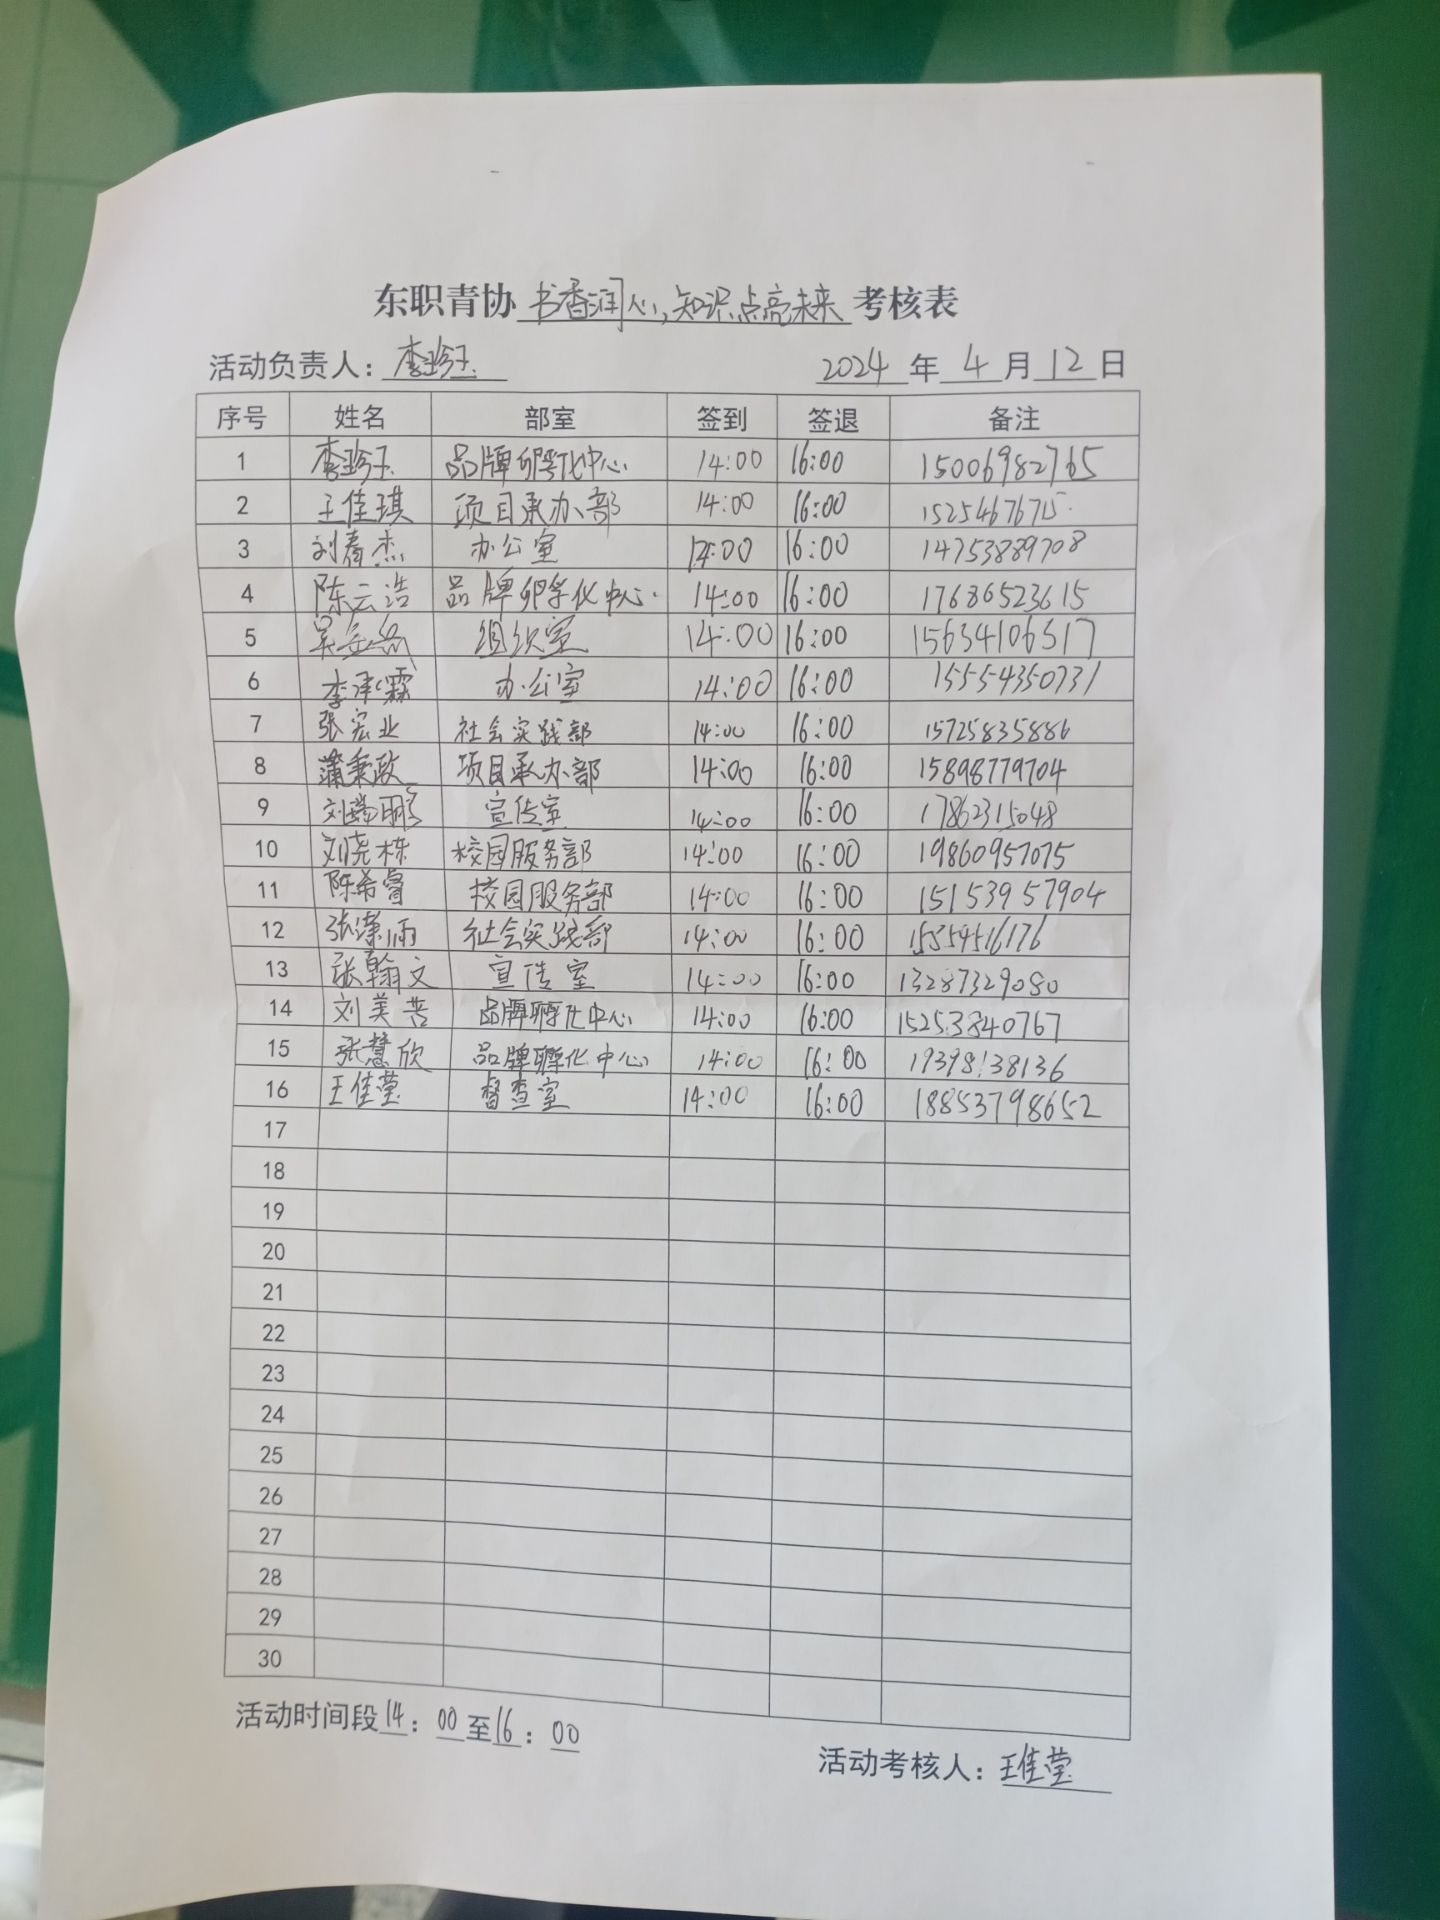 东职青协 书香润心,知识点亮未来 考核表
活动负责人: 李珍玉 2024 年 4 月 12 日
序号 姓名 部室 签到 签退 备注
1 李珍玉 品牌孵化中心 14:00 16:00 15006982765
2 王佳琪 项目承办部 14:00 16:00 15254676715
3 刘春杰 办公室 14:00 16:00 14753889708
4 陈云浩 品牌孵化中心 14:00 16:00 17686523615
5 组织室 14:00 16:00 15634106317
6 李泽霖 办公室 14:00 16:00 15554350731
7 张宏业 社会实践部 14:00 16:00 15725835886
8 蒲秉政 项目承办部 14:00 16:00 15898779704
9 刘瑞鹏 宣传室 14:00 16:00 17862315048
10 刘晓栋 校园服务部 14:00 16:00 19860957075
11 陈希睿 校园服务部 14:00 16:00 15153957904
12 张潆雨 社会实践部 14:00 16:00
13 张翰文 宣传室 14:00 16:00 13287329080
14 刘美菩 品牌孵化中心 14:00 16:00 15253840767
15 张慧欣 品牌孵化中心 14:00 16:00 19398138136
16 王佳莹 督查室 14:00 16:00 18853798652
17
18
19
20
21
22
23
24
25
26
27
28
29
30
活动时间段 14: 00 至 16: 00
活动考核人: 王佳莹